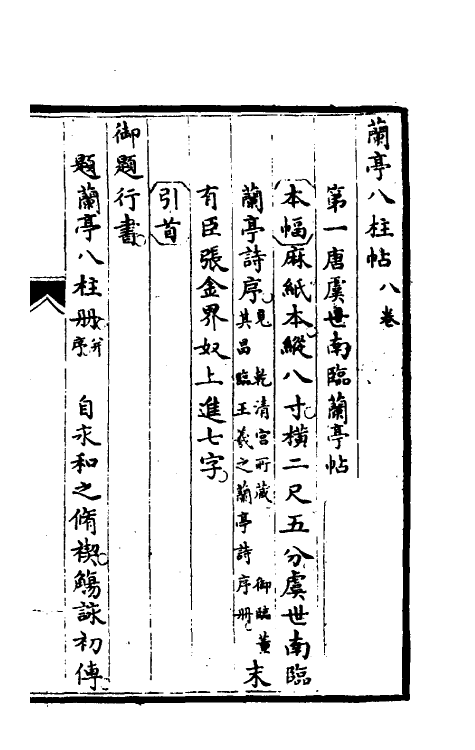 蘭亭八柱帖 八卷
第一唐虞世南臨蘭亭帖
本幅麻紙本縱八寸橫二尺五分虞世南臨
蘭亭詩序見 乾清宮所藏 御臨董其昌臨王羲之蘭亭詩序冊末
有臣張金界奴上進七字
引首
御題行書
題蘭亭八柱冊并序 自永和之脩禊觴詠初傳